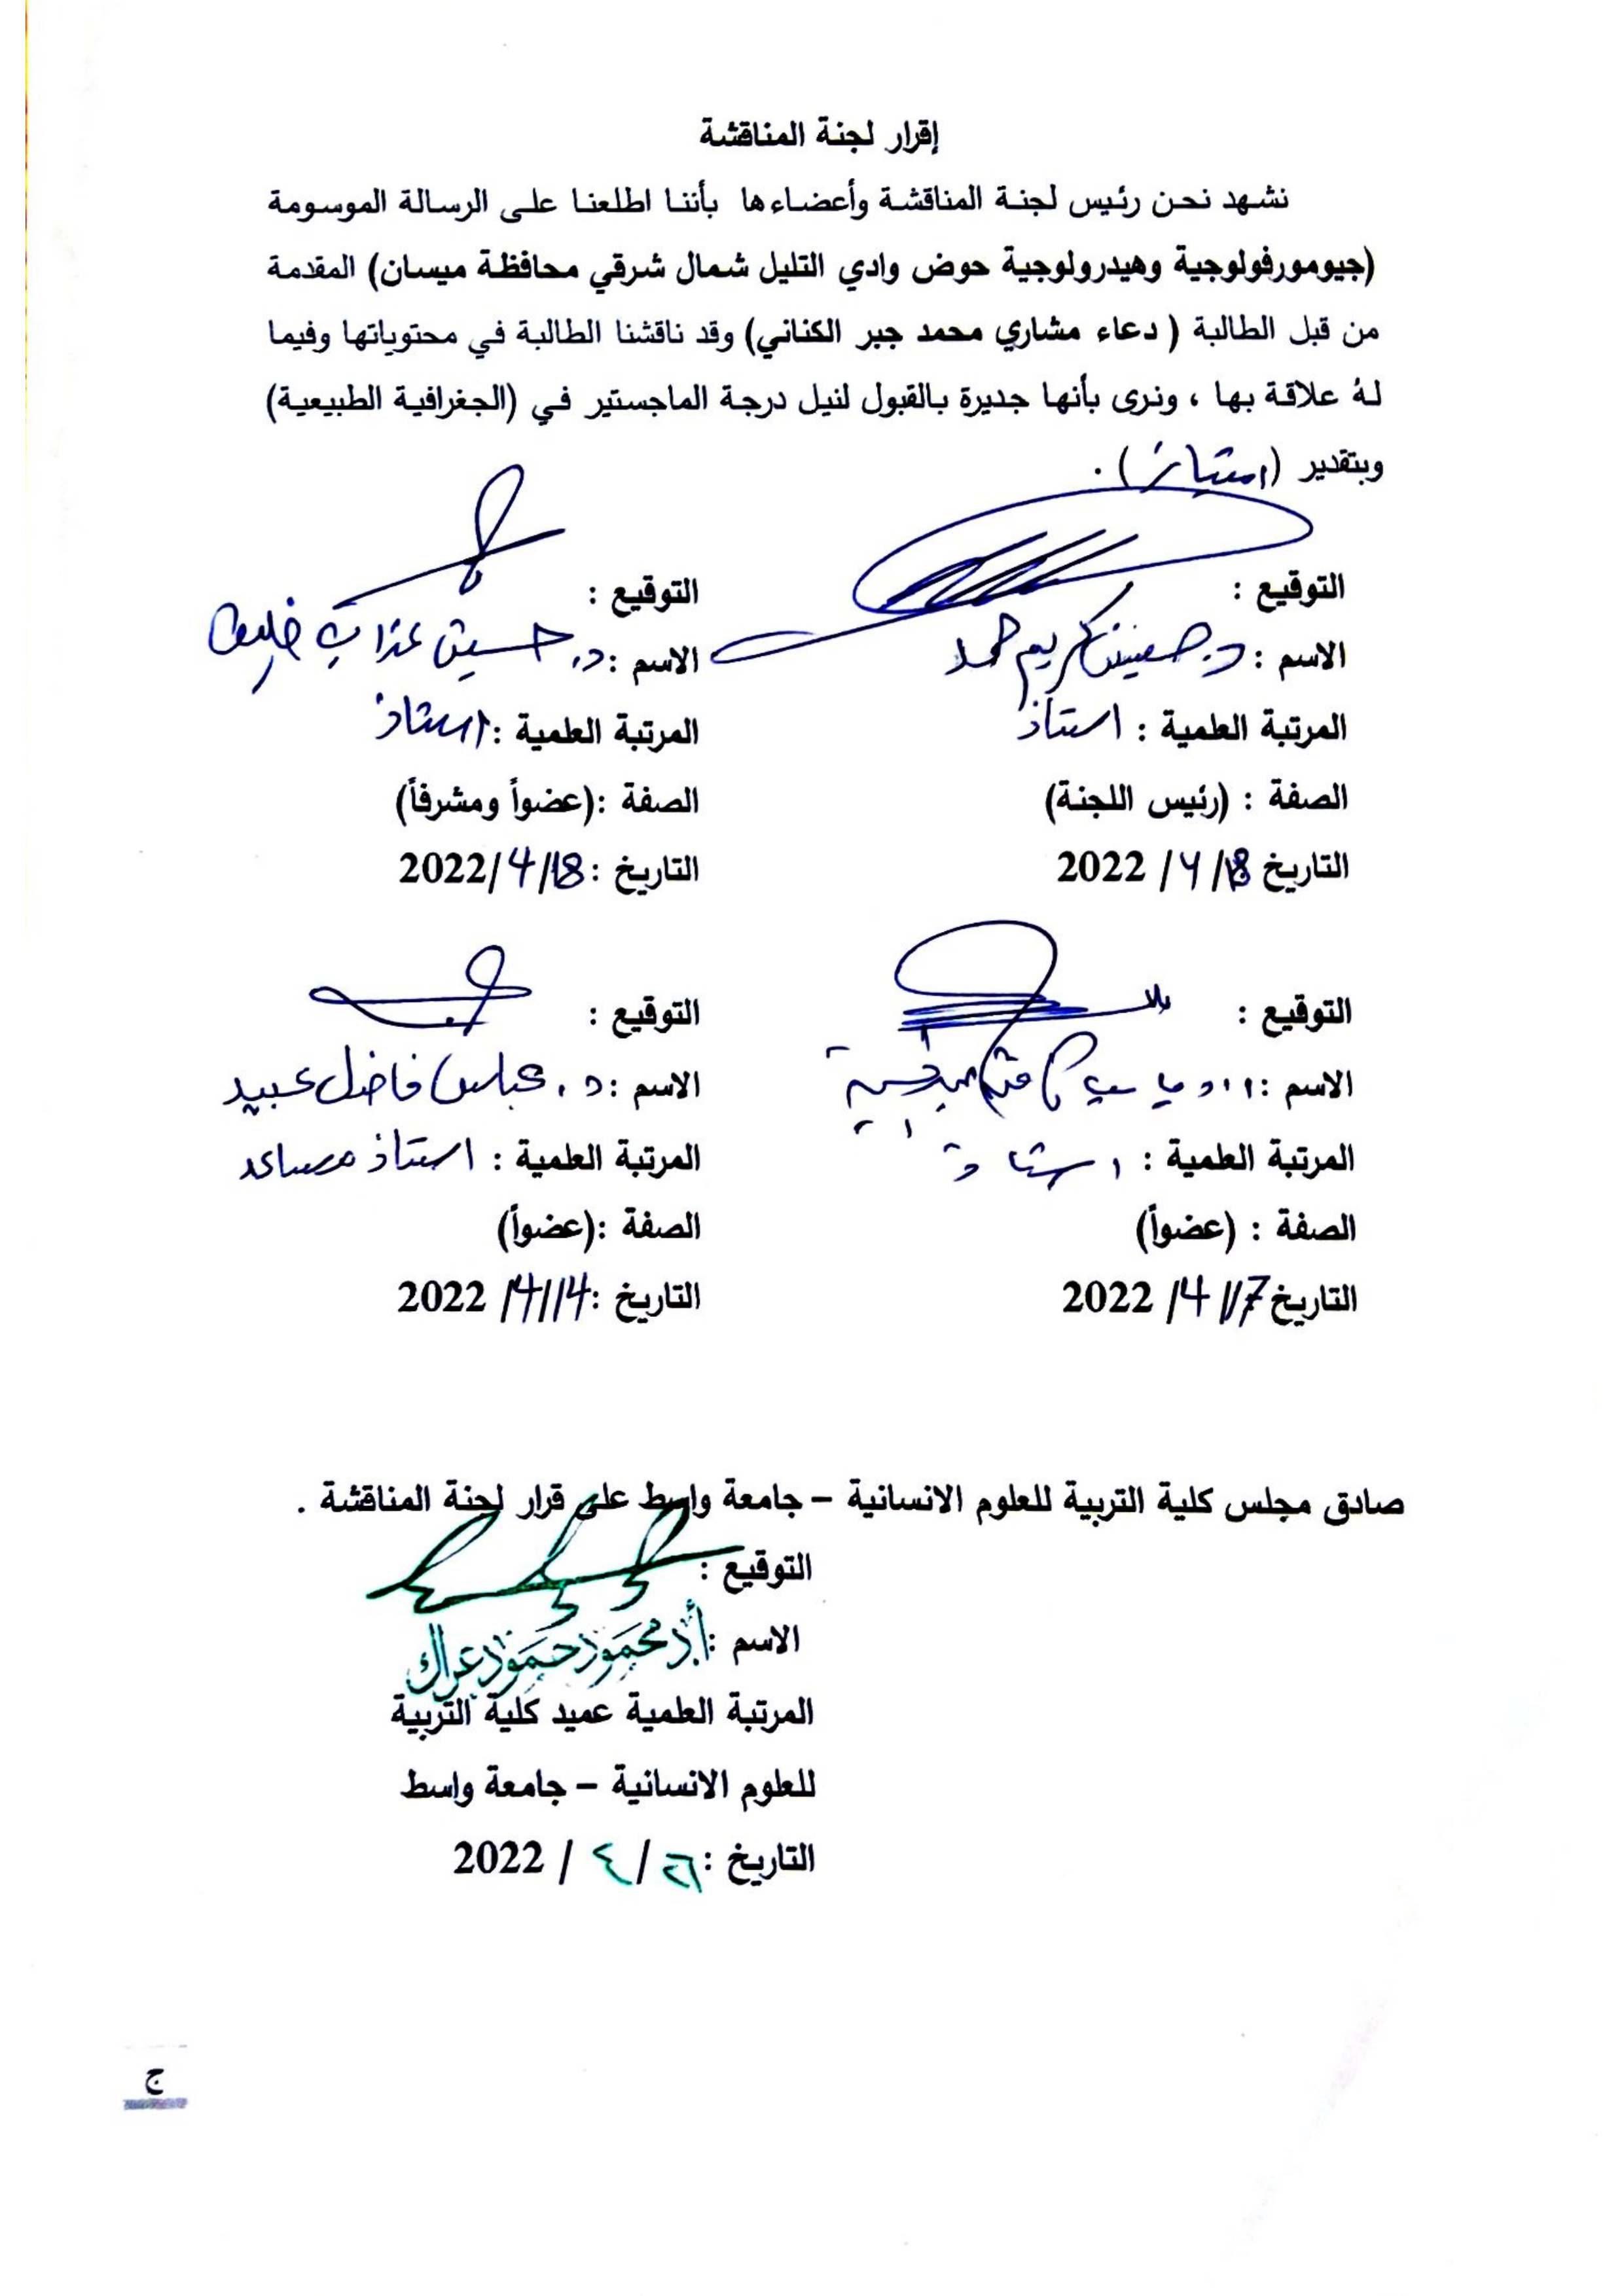 إقرار لجنة المناقشة
نشهد نحن رئيس لجنة المناقشة وأعضاءها بأننا اطلعنا على الرسالة الموسومة
(جيومورفولوجية وهيدرولوجية حوض وادي التليل شمال شرقي محافظة ميسان) المقدمة
من قبل الطالبة ( دعاء مشاري محمد جبر الكناني) وقد ناقشنا الطالبة في محتوياتها وفيما
لهُ علاقة بها ، ونرى بأنها جديرة بالقبول لنيل درجة الماجستير في (الجغرافية الطبيعية)
وبتقدير (امتياز) .
التوقيع :
الاسم : د. كريم
المرتبة العلمية : استاذ
الصفة : (رئيس اللجنة)
التاريخ 18/ 4/ 2022
التوقيع :
الاسم :د. حسين عذاب خليف
المرتبة العلمية :استاذ
الصفة :(عضواً ومشرفاً)
التاريخ :18/4/2022
التوقيع :
الاسم :
المرتبة العلمية :
الصفة : (عضواً)
التاريخ 17/ 4/ 2022
التوقيع :
الاسم :د. عباس فاضل عبيد
المرتبة العلمية : استاذ مساعد
الصفة :(عضواً)
التاريخ :14/4/ 2022
صادق مجلس كلية التربية للعلوم الانسانية – جامعة واسط على قرار لجنة المناقشة .
التوقيع :
الاسم :أ.د محمود حمود عراك
المرتبة العلمية عميد كلية التربية
للعلوم الانسانية – جامعة واسط
التاريخ :٢٦/ ٤ / 2022
ج